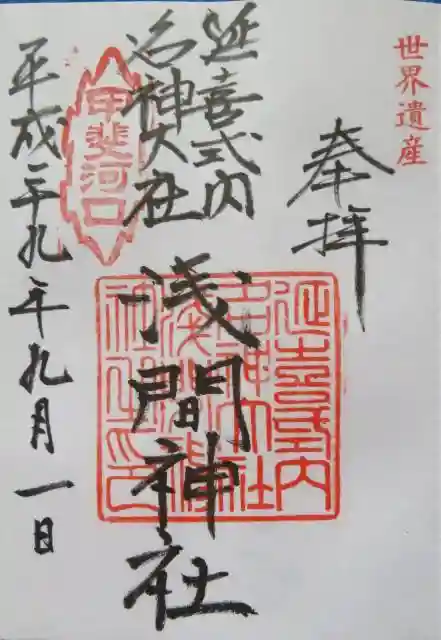 世界遺産
奉拝
延喜式内
名神大社
甲斐河口
延喜式内
名神大社
浅間神社
平成二十九年九月一日